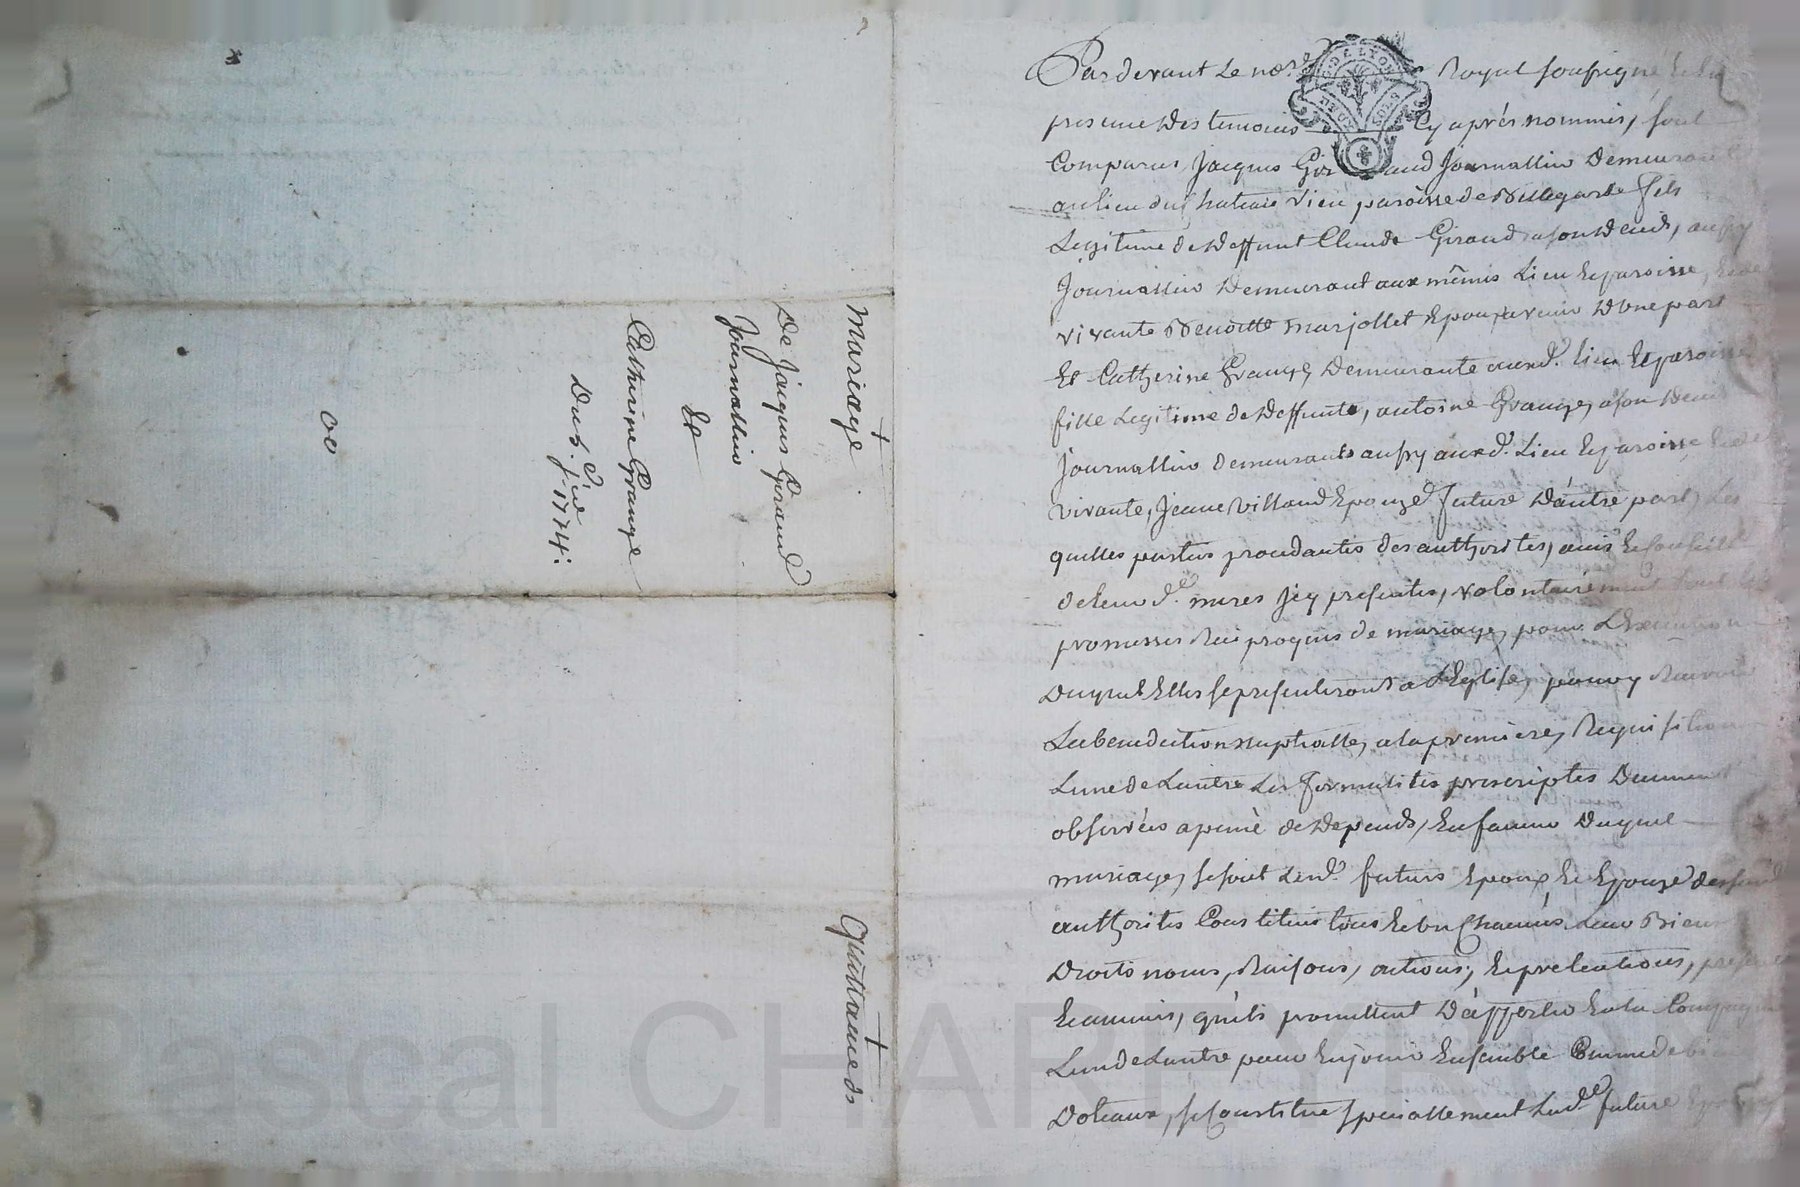 Mariage
De Jacques Giraud
Journallier
Et
Catherine Grange
Du 5. Jer 1774:
Quittancés
Par devant Le nore Royal soussigné Et En
presence Des temoins Cy aprés nommés, sont
Comparus Jacques Giraud Journallier Demeurant
au lieu du Chateau vieu paroisse de Bellegarde fils
Legitime de Deffunt Claude Giraud a son Deceds, aussy
Journallier Demeurant aux mêmes Lieu Et paroisse, Et de
vivante Benoitte marjollet Epoux avenir D'une part
Et Catherine Grange, Demeurante auxd. lieu Et paroisse
fille Legitime de Deffunt, antoine Grange, a son Deceds
Journallier demeurant aussy auxd. Lieu Et paroisse Et de
vivante, Jeane Villaud Epouze future D'autre part, Les
quelles parties procedantes des authorités, avis Et Conseils
de leurs d. meres Icy presentes, volontairement
promesses Reciproques de mariage, pour L'Execution
Duquel Elles se presenteront a L'Eglise, pour y Recevoir
La benediction nuptialle, a la premiere, Requisition
L'une de L'autre Les formalités prescriptes Deument
observées a peine de Depends, En faveur Duquel
mariage, se sont Lesd. futurs Epoux Et Epouze desdites
authorités Constitués tous Et un Chacuns Leur Biens
Droits noms, Raisons, actions, Et pretentions, presents
Et avenirs, qu'ils promettent D'apporter En la Compagnie
L'un de L'autre pour En jouir Ensemble Comme de biens
Doteaux, se Constitue specialement Lad. future Epouze
Pascal CHARTYON